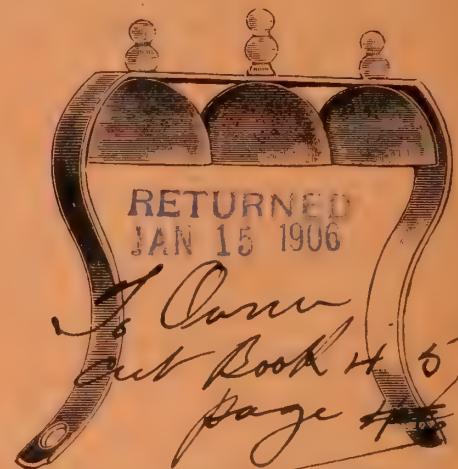 RETURNED
JAN 15 1906
To
out Book 4 5
page